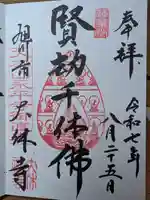 奉拝
令和七年
八月二十五日
賢劫千体佛
旭川市
大休寺